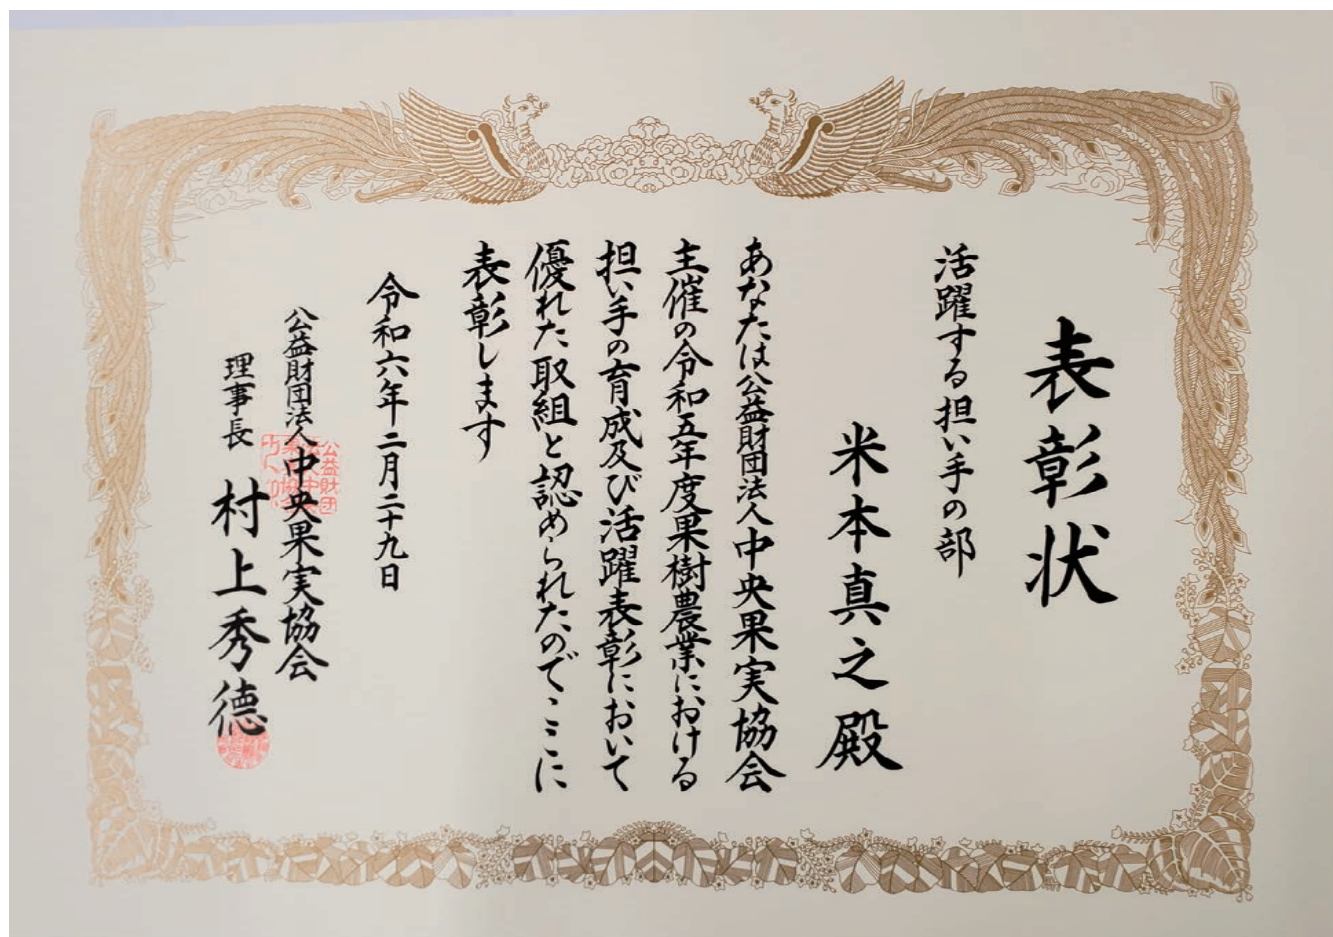 表彰状
活躍する担い手の部
米本真之殿
あなたは公益財団法人中央果実協会
主催の令和五年度果樹農業における
担い手の育成及び活躍表彰において
優れた取組と認められたのでここに
表彰します
令和六年二月二十九日
公益財団法人中央果実協会
理事長 村上秀德